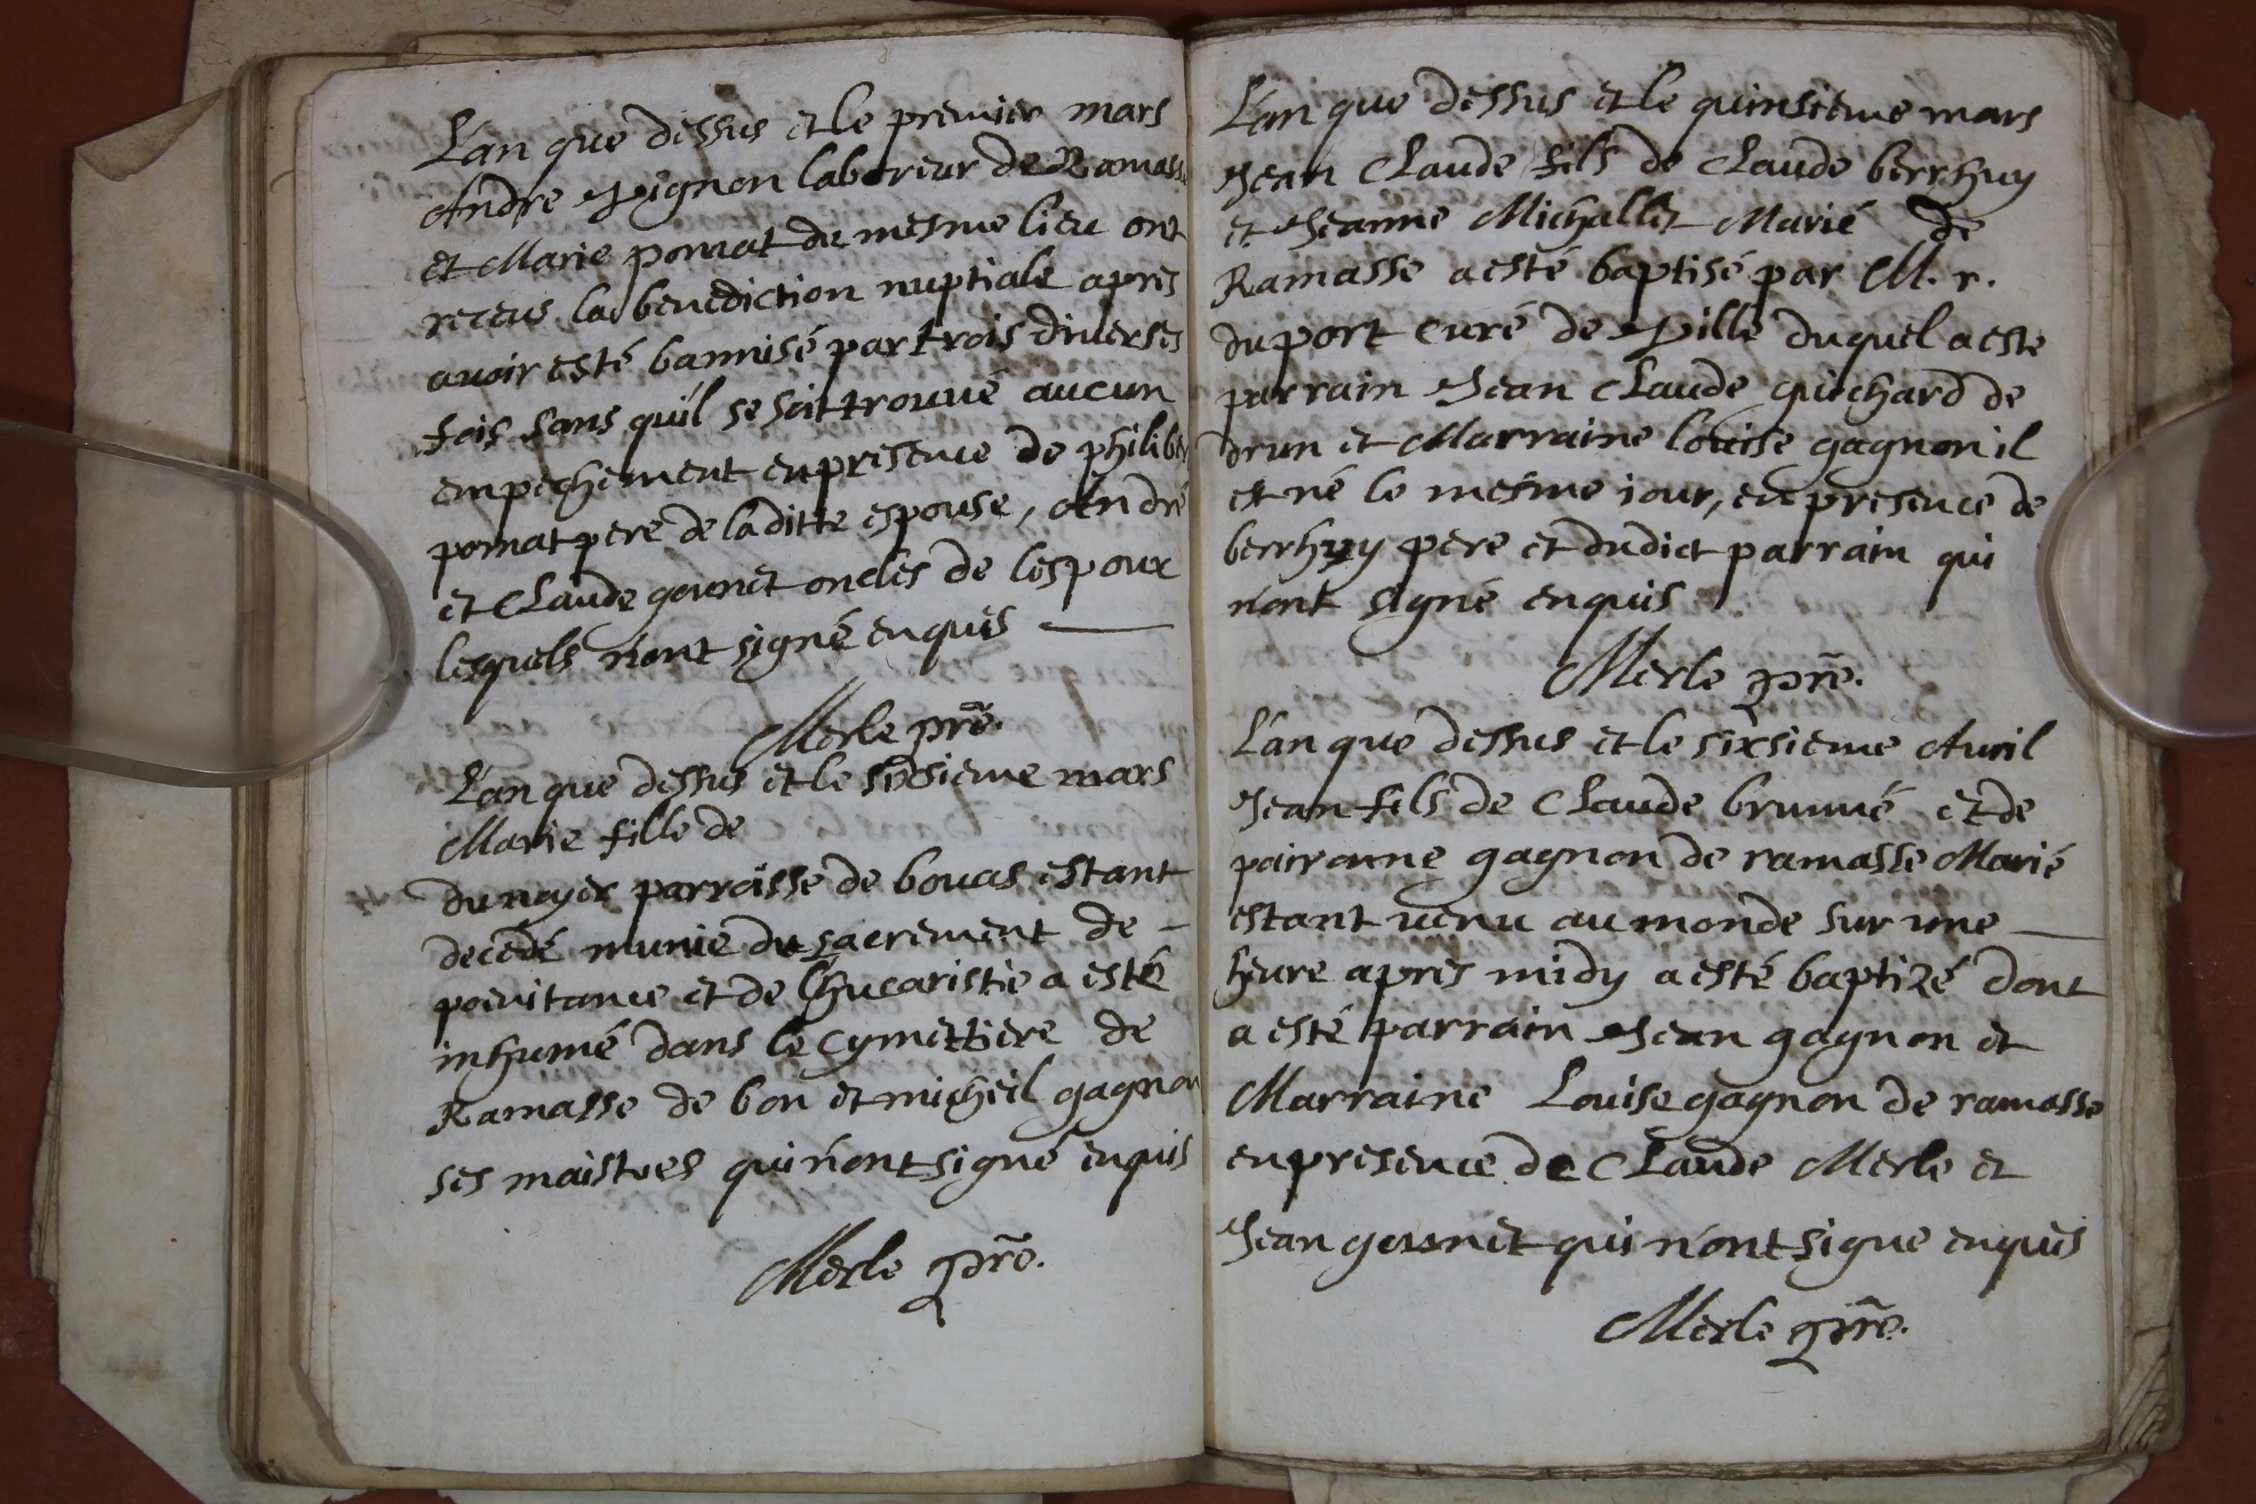 L'an que dessus et le premier mars
Andre pignon laboreur de Ramasse
et Marie pomat du mesme lieu ont
receus la benediction nuptiale apres
avoir esté bannisé par trois diverses
fois sans qu'il se soit trouvé aucun
empechement en presence de philiber
pomat pere de laditte espouse, André
et Claude gounet oncles de l'espoux
lesquels n'ont signé enquis
Merle pre.
L'an que dessus et le sixsieme mars
Marie fille de
du noyer parroisse de bouas estant
decedé munie du sacrement de
poenitance et de l'hucaristie a esté
inhumé dans le cymettiere de
Ramasse de bon et micheil gagnon
ses maistres qui n'ont signé enquis
Merle pre.
L'an que dessus et le quinsieme mars
Jean Claude fils de Claude berrhuy
et Jeanne Michallet Marié de
Ramasse a esté baptisé par M. r.
duport curé de pille duquel a este
parrain Jean Claude guichard de
drun et Marraine louise gagnon il
est né le mesme iour, en presence de
berrhuy pere et dudict parrain qui
n'ont signé enquis
Merle pre.
L'an que dessus et le sixsieme Auril
Jean fils de Claude brunné et de
pairoune gagnon de ramasse Marié
estant uenu au monde sur une
heure apres midy a esté baptizé dont
a esté parrain Jean gagnon et
Marraine Louise gagnon de ramasse
en presence de Claude Merle et
Jean gounet qui n'ont signe enquis
Merle pre.